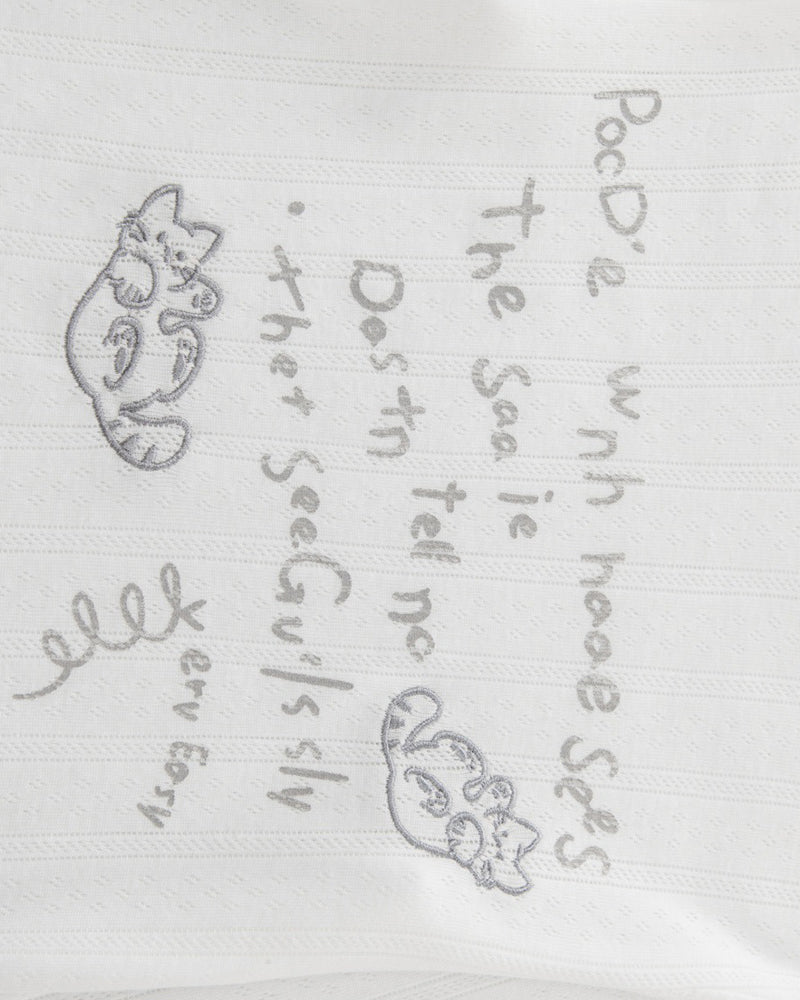 PocD'e wnh haoe Sees
the Saa ie
Dostn tell no
. thet SeeGvi's sly
very Easy